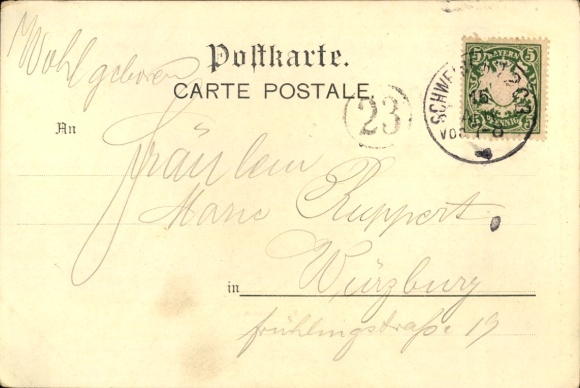 Wohlgeboren
Postkarte.
CARTE POSTALE.
23
5 BAYERN 5
5 PFENNIG 5
An
Fräulein
Marie Ruppert
in Würzburg
Frühlingstraße 19